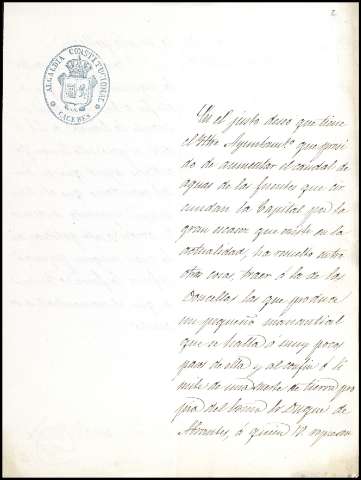 2
ALCALDIA CONSTITUCIONAL
CACERES
En el justo deseo que tiene
el Iltre Ayuntamto que presi
do de aumentar el caudal de
aguas de las fuentes que cir
cundan la Capital por la
gran escasez que existe en la
actualidad, ha resuelto entre
otras cosas, traer á la de las
Doncellas las que produce
un pequeño manantial
que se halla á muy pocos
pasos de ella y al confin ó li
mite de una suerte de tierra pro
pia del Duque de
Abrantes, á quien V. represen